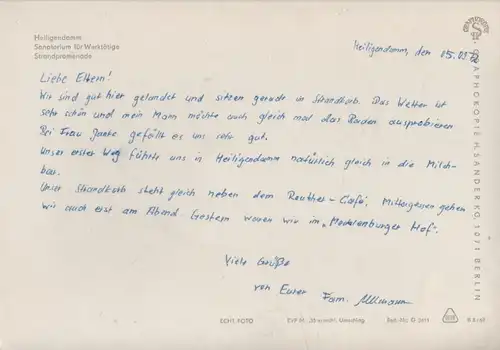 Heiligendamm
Sanatorium für Werktätige
Strandpromenade
Heiligendamm, den 05.09.
Liebe Eltern!
Wir sind gut hier gelandet und sitzen gerade im Strandkorb. Das Wetter ist
sehr schön und mein Mann möchte auch gleich mal das Baden ausprobieren
Bei Frau Janke gefällt es uns sehr gut.
Unser erster Weg führte uns in Heiligendamm natürlich gleich in die Milch-
bar.
Unser Strandkorb steht gleich neben dem Reuther-Café. Mittagessen gehen
wir auch erst am Abend Gestern waren wir im "Mecklenburger Hof".
Viele Grüße
von Eurer Fam. Ullmann
GRAPHOKOPIE H. SANDER KG, 1071 BERLIN
ECHT FOTO
EVP M